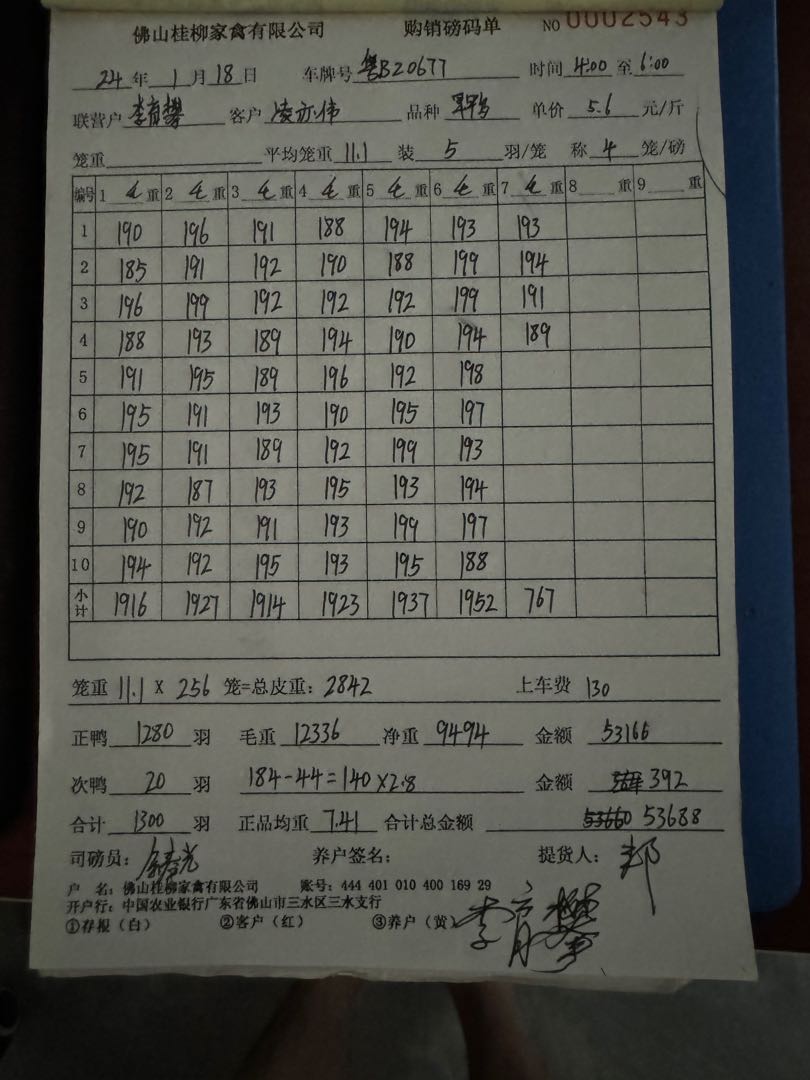 佛山桂柳家禽有限公司 购销磅码单 NO 0002543
24年 1月 18日 车牌号 粤B20677 时间 4:00 至 6:00
联营户 李育攀 客户 凌亦伟 品种 单价 5.6 元/斤
笼重 平均笼重 11.1 装 5 羽/笼 称 4 笼/磅
编号 1 毛 重 2 毛 重 3 毛 重 4 毛 重 5 毛 重 6 毛 重 7 毛 重 8 重 9 重
1 190 196 191 188 194 193 193
2 185 191 192 190 188 199 194
3 196 199 192 192 192 199 191
4 188 193 189 194 190 194 189
5 191 195 189 196 192 198
6 195 191 193 190 195 197
7 195 191 189 192 199 193
8 192 187 193 195 193 194
9 190 192 191 193 199 197
10 194 192 195 193 195 188
小计 1916 1927 1914 1923 1937 1952 767
笼重 11.1 X 256 笼=总皮重: 2842 上车费 130
正鸭 1280 羽 毛重 12336 净重 9494 金额 53166
次鸭 20 羽 184-44=140×2.8 金额 392
合计 1300 羽 正品均重 7.41 合计总金额 53660 53688
司磅员: 养户签名: 提货人: 邦
户 名: 佛山桂柳家禽有限公司 账号: 444 401 010 400 169 29
开户行: 中国农业银行广东省佛山市三水区三水支行
①存报(白) ②客户(红) ③养户(黄) 李育攀